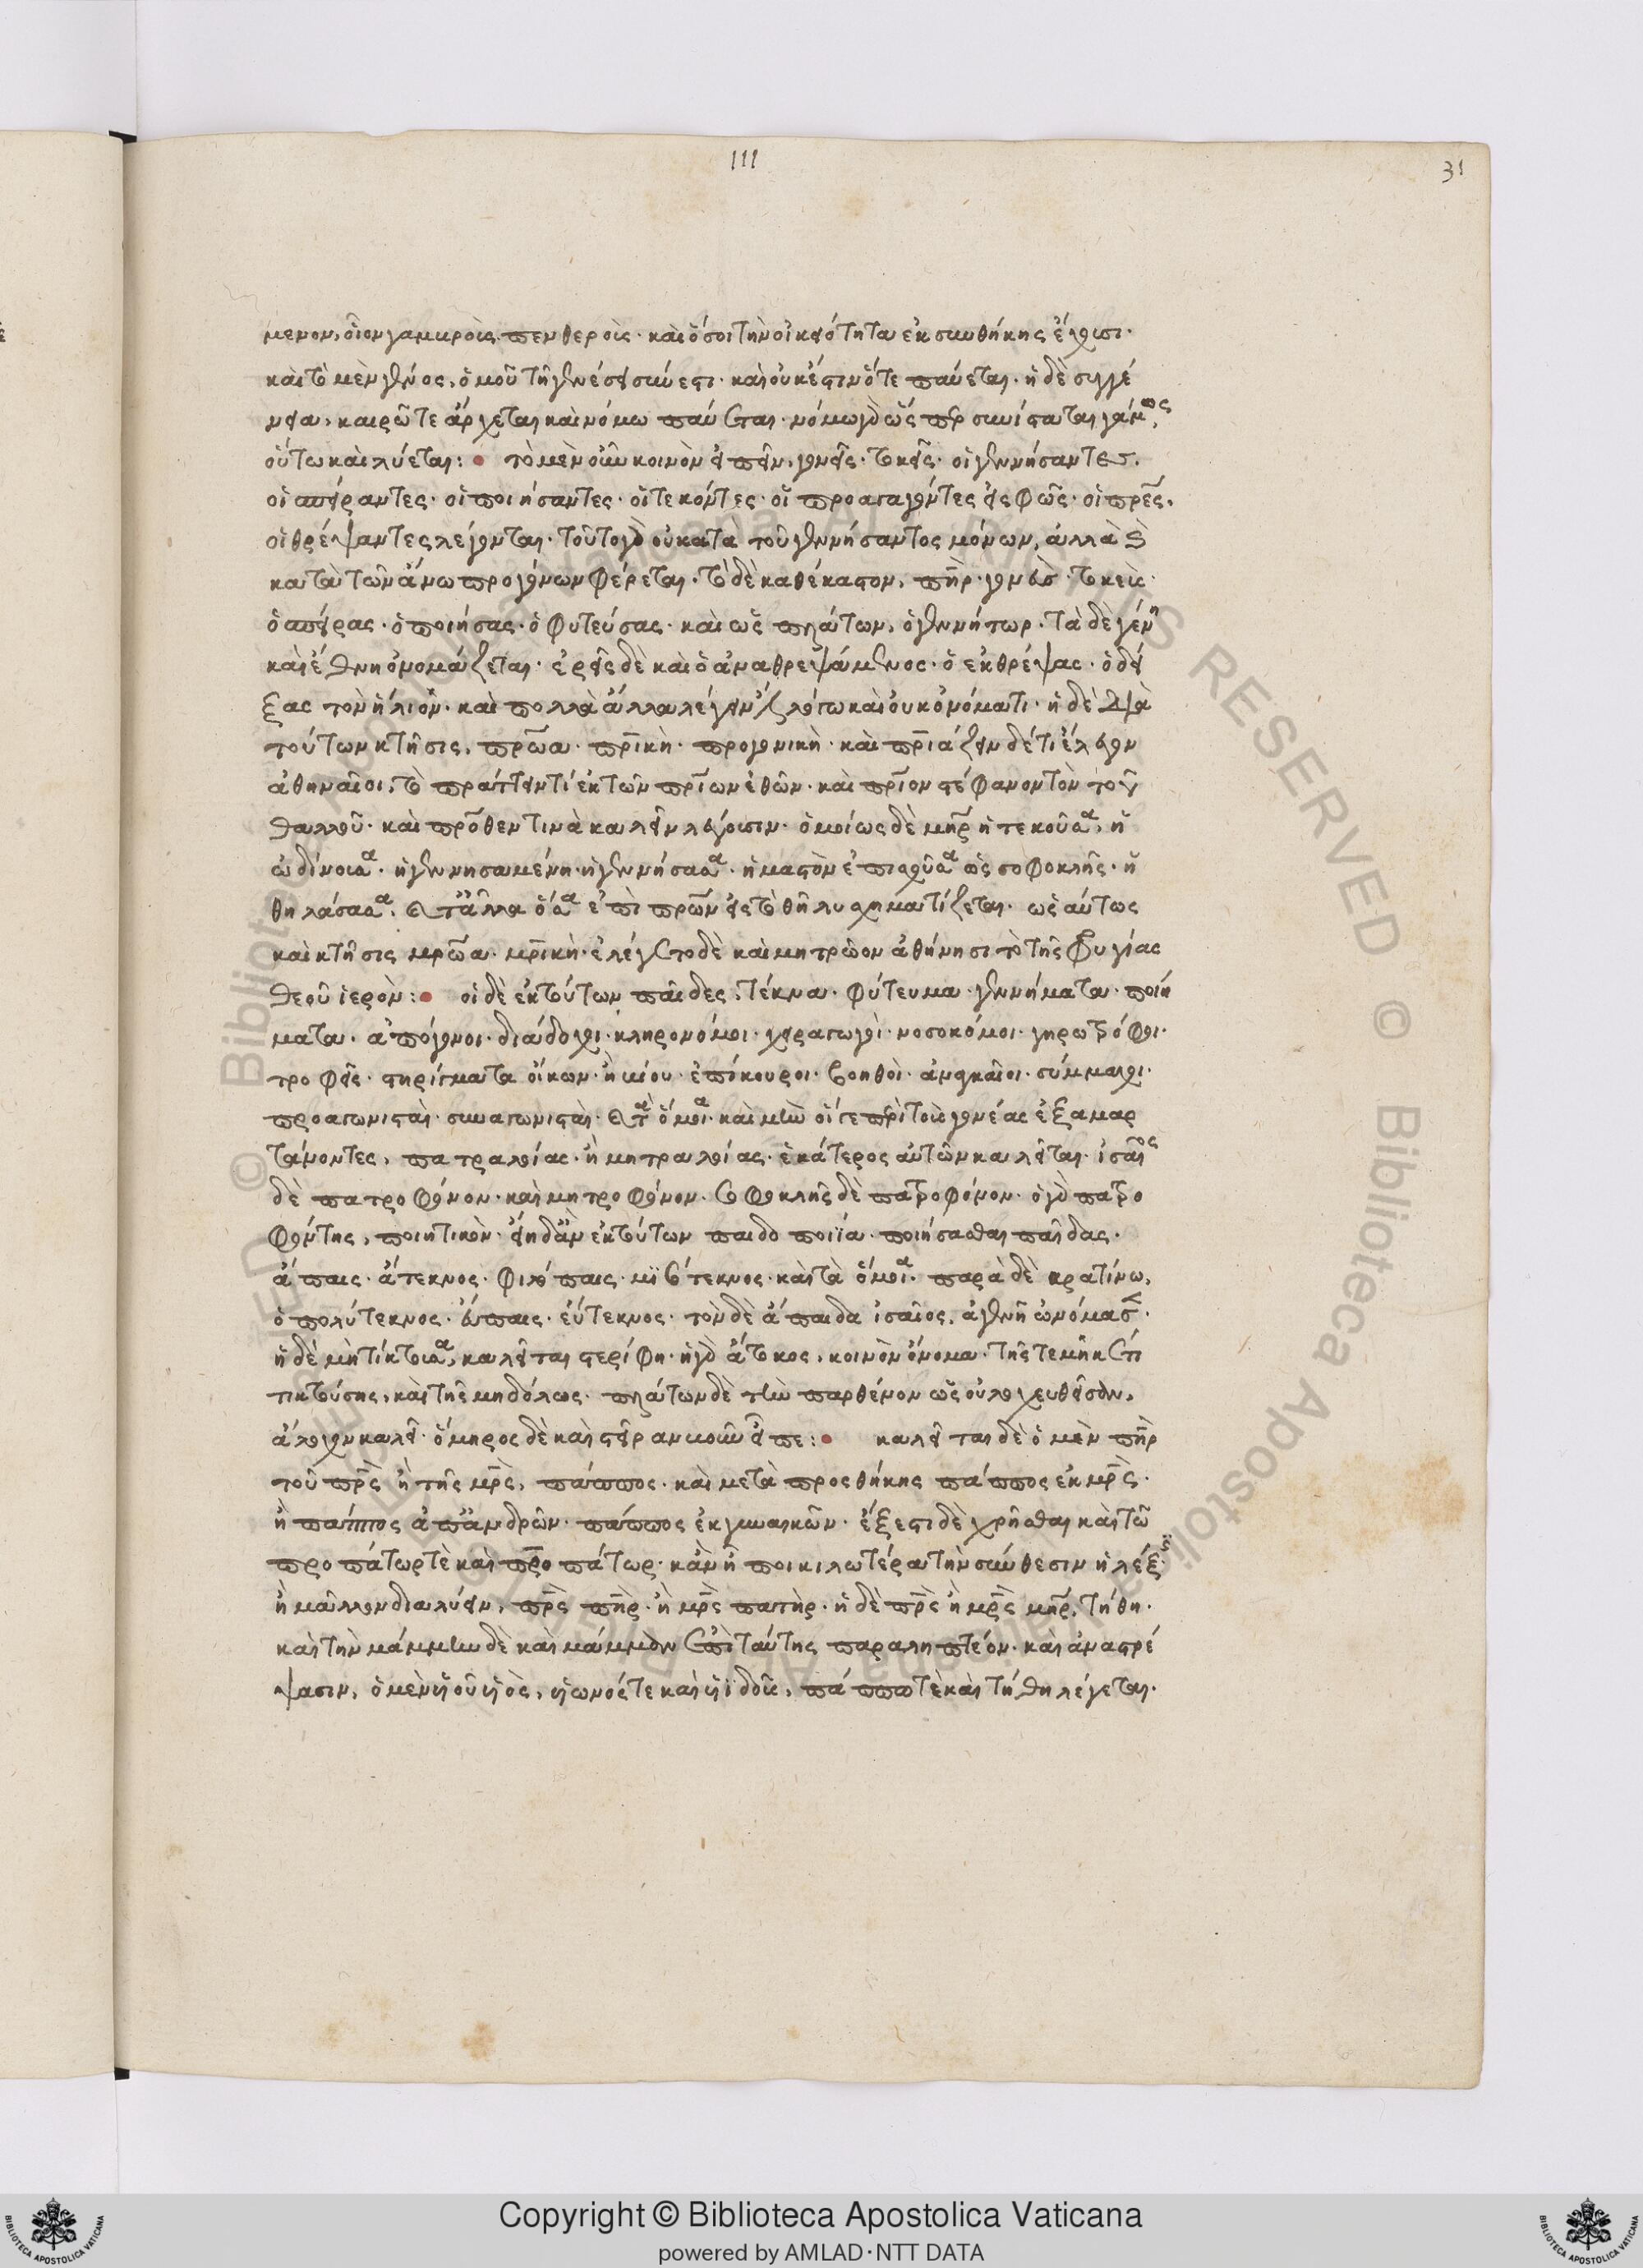 III
31
μενον, οἷον γαμβροῖς πενθεροῖς· καὶ ὅσοι τὴν οἰκειότητα ἐκ συνθήκης ἔχουσι·
καὶ τὸ μὲν γένος, ὁμοῦ τῇ γενέσει σύνεστι· καὶ οὐκ ἔστιν ὅτε παύεται· ἡ δὲ συγγέ
νεια, καιρῶ τε ἄρχεται καὶ νόμω παύεται· νόμω γὰρ ὥσπερ συνίσταται γάμος,
οὕτω καὶ λύεται: τὸ μὲν οὖν κοινὸν εἰπεῖν, γονεῖς· τοκεῖς· οἱ γεννήσαντες·
οἱ σπείραντες· οἱ ποιήσαντες· οἱ τεκόντες· οἱ προαγαγόντες εἰς φῶς· οἱ πρες·
οἱ θρέψαντες λέγονται· τοῦτο γὰρ οὐ κατὰ τοῦ γεννήσαντος μόνων, ἀλλὰ καὶ
κατὰ τῶν ἄνω προγόνων φέρεται· τὸ δὲ καθέκαστον, πηρ· γονεὺς· τοκεὺς·
ὁ σπείρας· ὁ ποιήσας· ὁ φυτεύσας· καὶ ὡς πλάτων, ὁ γεννήτωρ· τὰ δὲ γένη
καὶ ἔθνη ὀνομάζεται· ἐρεῖς δὲ καὶ ὁ ἀναθρεψάμενος· ὁ ἐκθρέψας· ὁ δεί
ξας τὸν ἥλιον· καὶ πολλὰ ἄλλα λέγειν ἔξω λόγω καὶ οὐκ ὀνόματι· ἡ δὲ παρὰ
τούτων κτῆσις, πρώα· πρικὴ· προγονικὴ· καὶ πριάζειν δέ τι ἔλεγον
ἀθηναῖοι, τὸ πράττειν τί ἐκ τῶν πρίων ἐθῶν· καὶ πριον στέφανον τὸν τοῦ
θαλλοῦ· καὶ προθεν τινὰ καλεῖν λέγουσιν· ὁμοίως δὲ μηρ ἡ τεκοῦσα, ἡ
ὠδίνουσα· ἡ γεννησαμένη· ἡ γεννήσασα· ἡ μαστὸν ἐπισχοῦσα ὡς σοφοκλῆς· ἡ
θηλάσασα· καὶ τἄλλα ὅσα ἐπὶ πρων εἰς τὸ θῆλυ σχηματίζεται· ὡσαύτως
καὶ κτῆσις μρώα· μρικὴ· ἐλέγετο δὲ καὶ μητρῶον ἀθήνησι τὸ τῆς φρυγίας
θεοῦ ἱερὸν: οἱ δὲ ἐκ τούτων παῖδες, τέκνα· φύτευμα· γεννήματα· ποιή
ματα· ἀπόγονοι· διάδοχοι· κληρονόμοι· χειραγωγοὶ· νοσοκόμοι· γηροτρόφοι·
τροφεῖς· στηρίγματα οἴκων· ἢ βίου· ἐπίκουροι· βοηθοὶ· ἀναγκαῖοι· σύμμαχοι·
προαγωνισταὶ· συναγωνισταὶ· καὶ τὰ ὅμοια· καὶ μὴν οἵγε περὶ τοὺς γονέας ἐξαμαρ
τάνοντες, πατραλοίας· ἢ μητραλοίας· ἑκάτερος αὐτῶν καλεῖται· ἰσαῖος
δὲ πατροφόνον· καὶ μητροφόνον· σοφοκλῆς δὲ πατροφόνον· ὁ γὰρ πατρο
φόντης, ποιητικὸν· εἴη δ' ἂν ἐκ τούτων παιδοποιΐα· ποιήσασθαι παῖδας·
ἄπαις· ἄτεκνος· φιλόπαις· μισότεκνος· καὶ τὰ ὅμοια· παρὰ δὲ κρατίνω,
ὁ πολύτεκνος· εὔπαις· εὔτεκνος· τὸν δὲ ἄπαιδα ἰσαῖος, ἀγενῆ ὠνόμασεν·
ἡ δὲ μὴ τίκτουσα, καλεῖται στερίφη· ἡ γὰρ ἄτοκος, κοινὸν ὄνομα· τῆς τε μηκέτι
τικτούσης, καὶ τῆς μηδόλως· πλάτων δὲ τὴν παρθένον ὡς οὐ λοχευθεῖσαν,
ἄλοχον καλεῖ· ὅμηρος δὲ καὶ στεῖραν βοῦν εἶπε: καλεῖται δὲ ὁ μὲν πηρ
τοῦ πρς ἢ τῆς μρς, πάππος· καὶ μετὰ προσθήκης πάππος ἐκ μρς·
ἢ πάππος ἀπ' ἀνδρῶν· πάππος ἐκ γυναικῶν· ἔξεστι δὲ χρῆσθαι καὶ τῶ
προπάτωρ τὲ καὶ προπάτωρ· κἂν ἢ ποικιλωτέρα τὴν σύνθεσιν ἡ λέξις
ἢ μᾶλλον διαλύειν, πρς πηρ· ἢ μρς πατὴρ· ἡ δὲ πρς ἢ μρς μηρ, τήθη·
καὶ τὴν μάμμην δὲ καὶ μάμμαν ἐπὶ ταύτης παραληπτέον· καὶ ἀναστρέ
ψασιν, ὁ μὲν υἱοῦ υἱὸς, υἱωνός τε καὶ υἱιδοῦς, πάππω τὲ καὶ τήθη λέγεται·
Copyright © Biblioteca Apostolica Vaticana
powered by AMLAD·NTT DATA